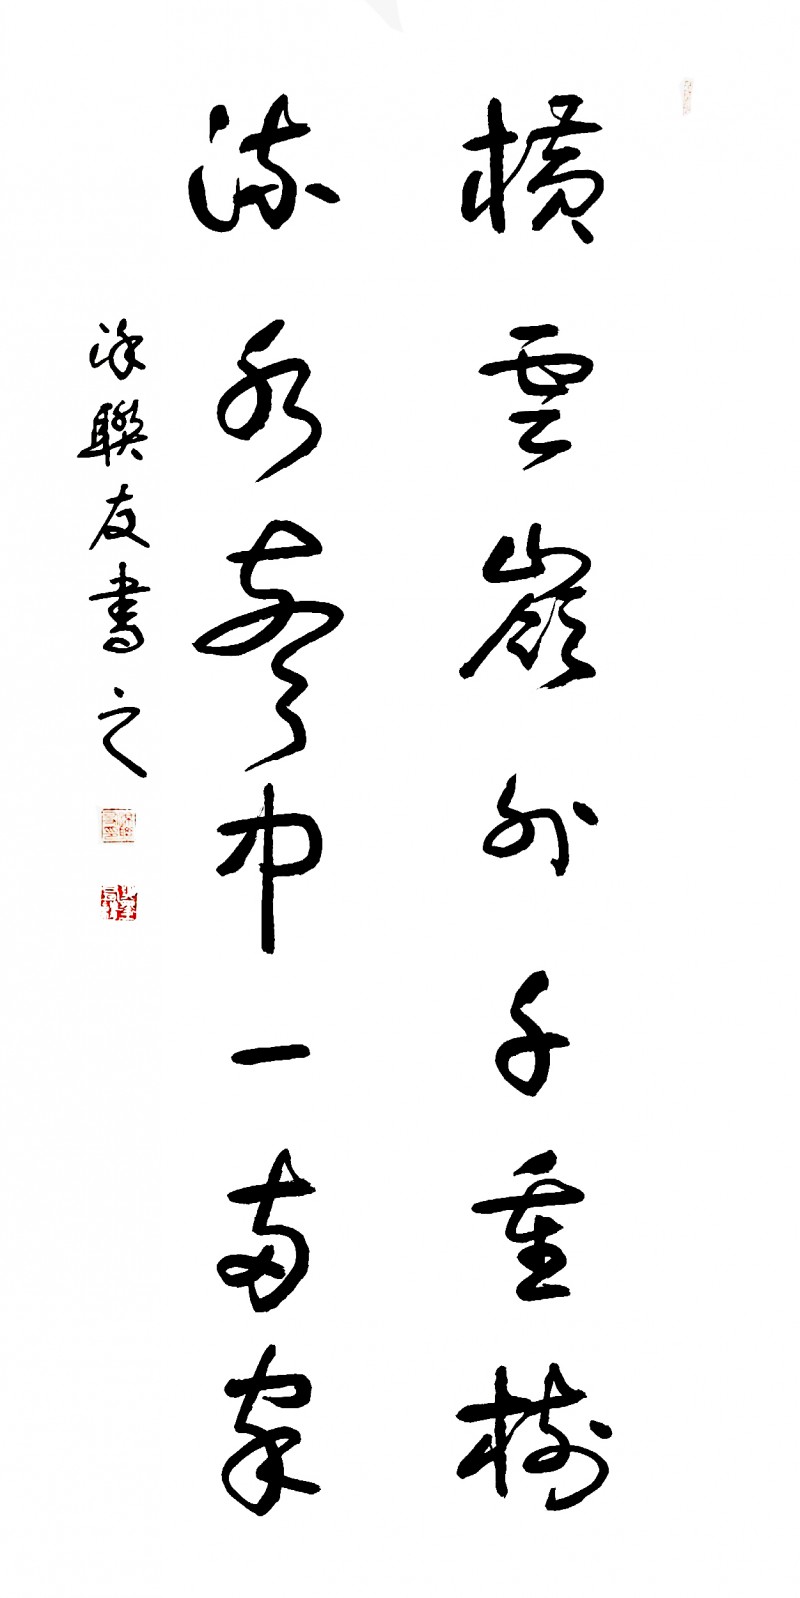 橫雲嶺外千重樹
流水聲中一兩家
涂聯友書之